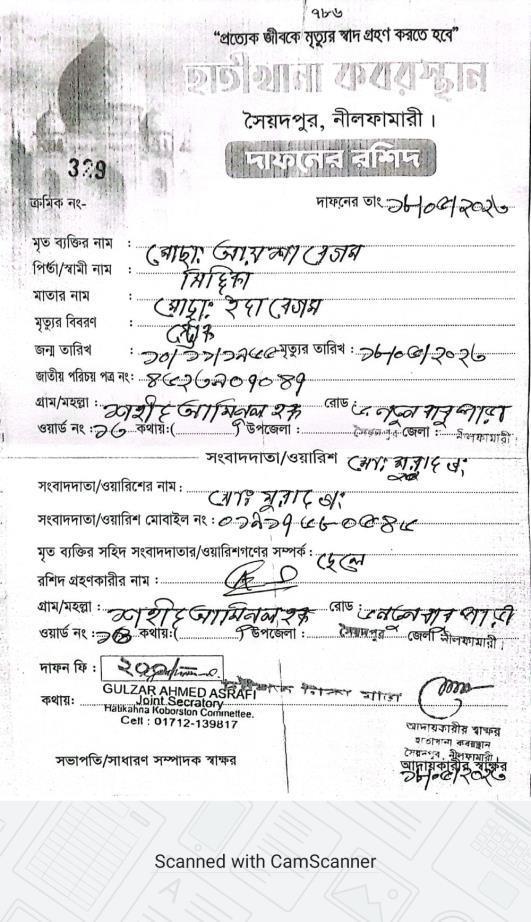 ৭৮৬
“প্রত্যেক জীবকে মৃত্যুর স্বাদ গ্রহণ করতে হবে”
হাতীখানা কবরস্থান
সৈয়দপুর, নীলফামারী।
দাফনের রশিদ
329
ক্রমিক নং- দাফনের তাং ১৮/০৫/২০২৩
মৃত ব্যক্তির নাম : মোছাঃ আয়শা বেগম
পির্তা/স্বামী নাম : সিদ্দিকী
মাতার নাম : মোছাঃ ইদা বেগম
মৃত্যুর বিবরণ : স্ট্রোক
জন্ম তারিখ : ১০/১১/১৯৫৫ মৃত্যুর তারিখ : ১৮/০৫/২০২৩
জাতীয় পরিচয় পত্র নং :
গ্রাম/মহল্লা : শহীদ আমিনুল হক রোড
ওয়ার্ড নং : কথায়:( ) উপজেলা : সৈয়দপুর জেলা : নীলফামারী।
সংবাদদাতা/ওয়ারিশ মোঃ মুরাদ
সংবাদদাতা/ওয়ারিশের নাম : মোঃ মুরাদ
সংবাদদাতা/ওয়ারিশ মোবাইল নং :
মৃত ব্যক্তির সহিদ সংবাদদাতার/ওয়ারিশগণের সম্পর্ক : ছেলে
রশিদ গ্রহণকারীর নাম :
গ্রাম/মহল্লা : শহীদ আমিনুল হক রোড :
ওয়ার্ড নং : কথায়:( ) উপজেলা : সৈয়দপুর জেলা নীলফামারী।
দাফন ফি : ২০০/-
কথায়: GULZAR AHMED ASRAFI
Joint Secratory
Hatikahna Koborston Committee.
Cell : 01712-139817
আদায়কারীর স্বাক্ষর
হাতীখানা কবরস্থান
সৈয়দপুর, নীলফামারী।
সভাপতি/সাধারণ সম্পাদক স্বাক্ষর আদায়কারীর স্বাক্ষর
১৮/০৫/২০২৩
Scanned with CamScanner